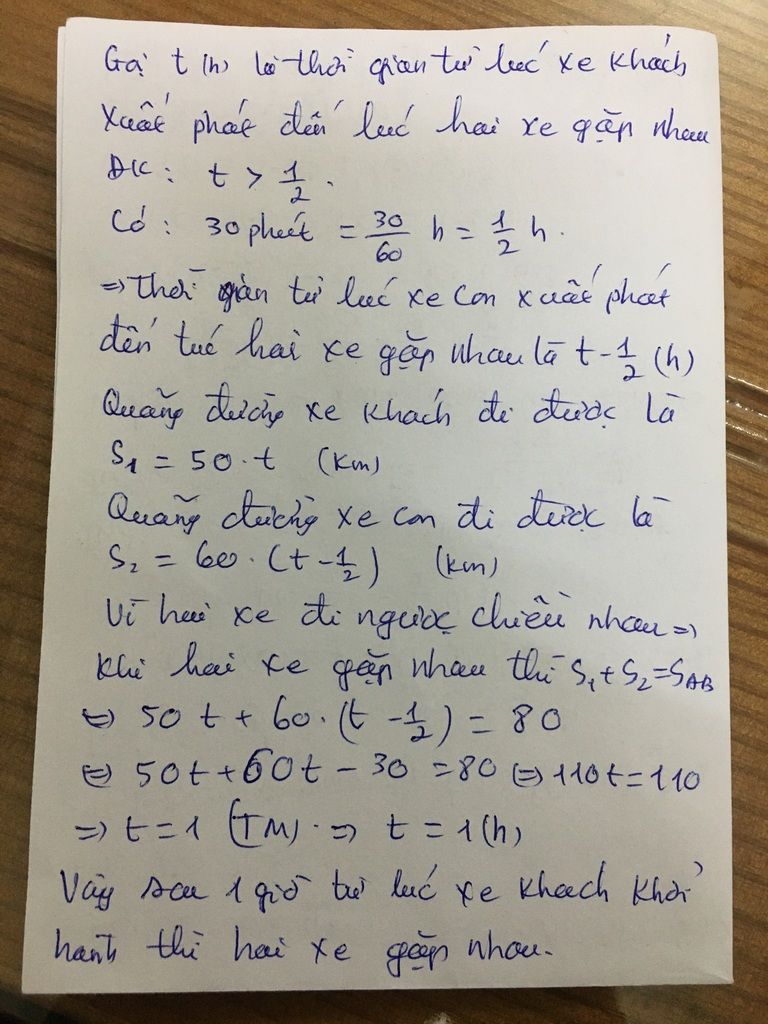 Gọi t (h) là thời gian từ lúc xe khách
xuất phát đến lúc hai xe gặp nhau
ĐK: t > 1/2.
Có: 30 phút = 30/60 h = 1/2 h.
=> Thời gian từ lúc xe con xuất phát
đến lúc hai xe gặp nhau là t - 1/2 (h)
Quãng đường xe khách đi được là
S₁ = 50.t (km)
Quãng đường xe con đi được là
S₂ = 60.(t - 1/2) (km)
Vì hai xe đi ngược chiều nhau =>
khi hai xe gặp nhau thì S₁ + S₂ = S_AB
<=> 50t + 60.(t - 1/2) = 80
<=> 50t + 60t - 30 = 80 <=> 110t = 110
=> t = 1 (TM). => t = 1 (h)
Vậy sau 1 giờ từ lúc xe khách khởi
hành thì hai xe gặp nhau.